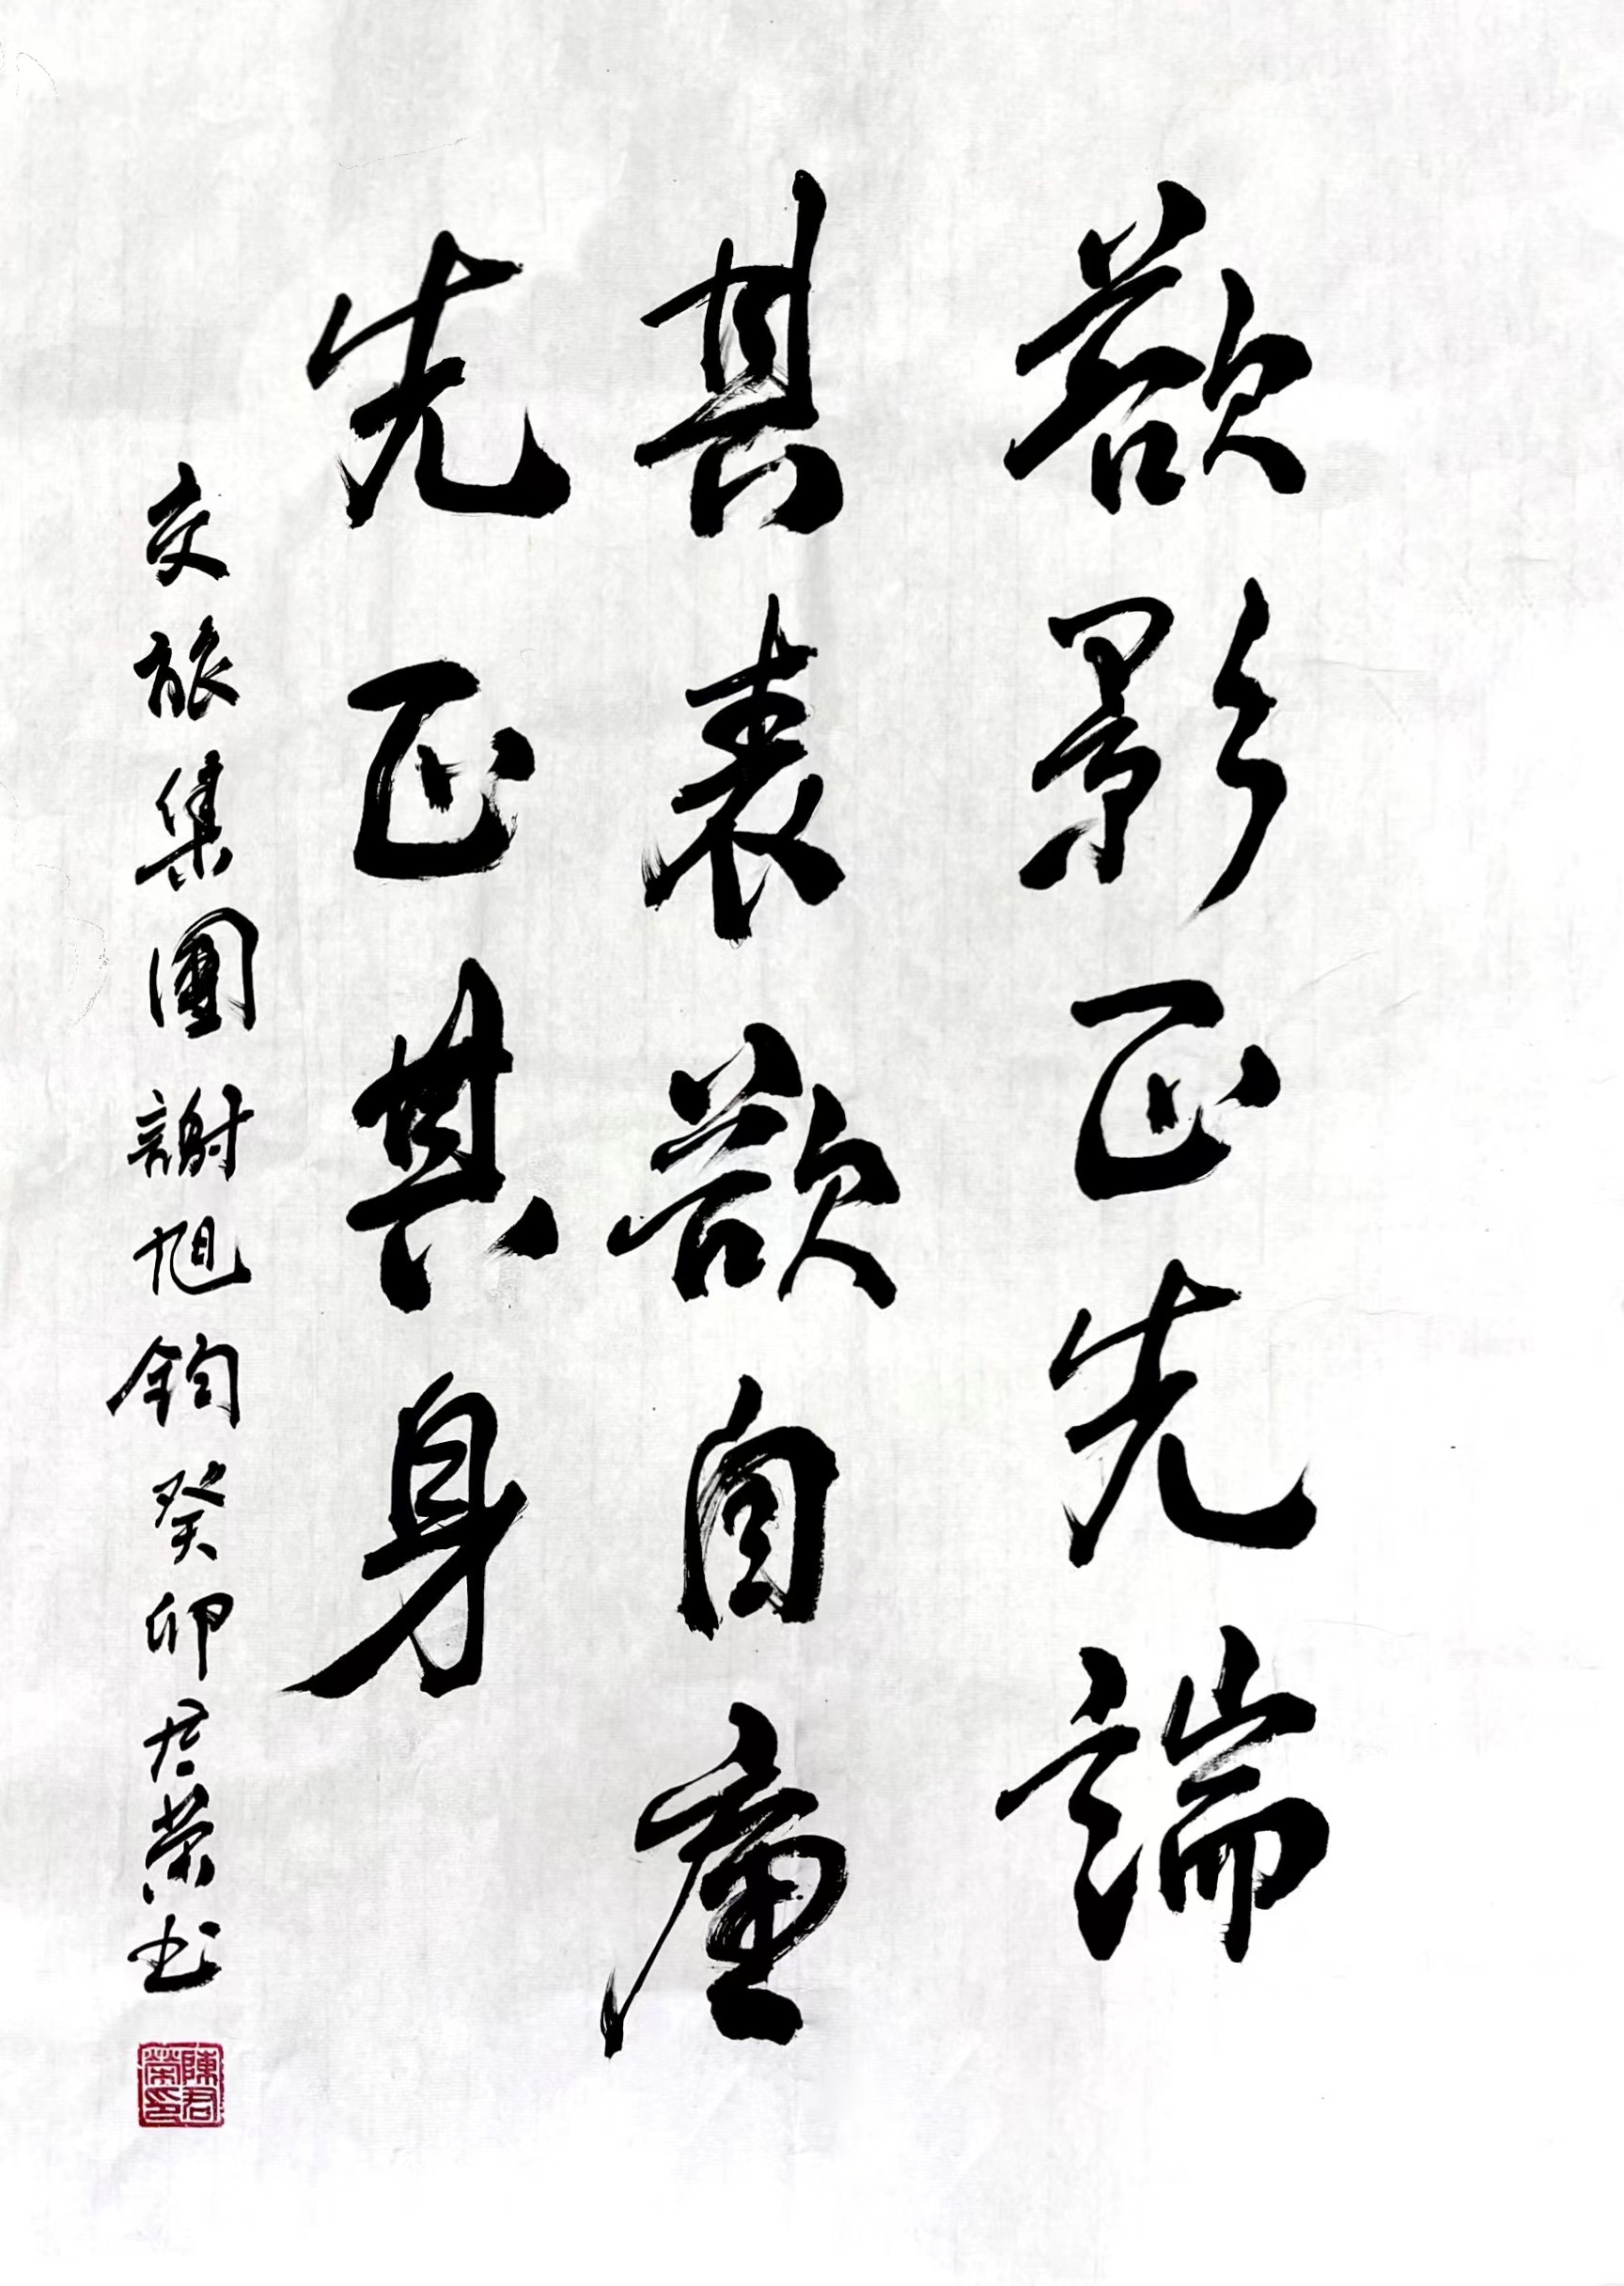 欲影正先端
其表欲自廉
先正其身
交旅集團謝旭鈞癸卯君荣书
陳君榮印